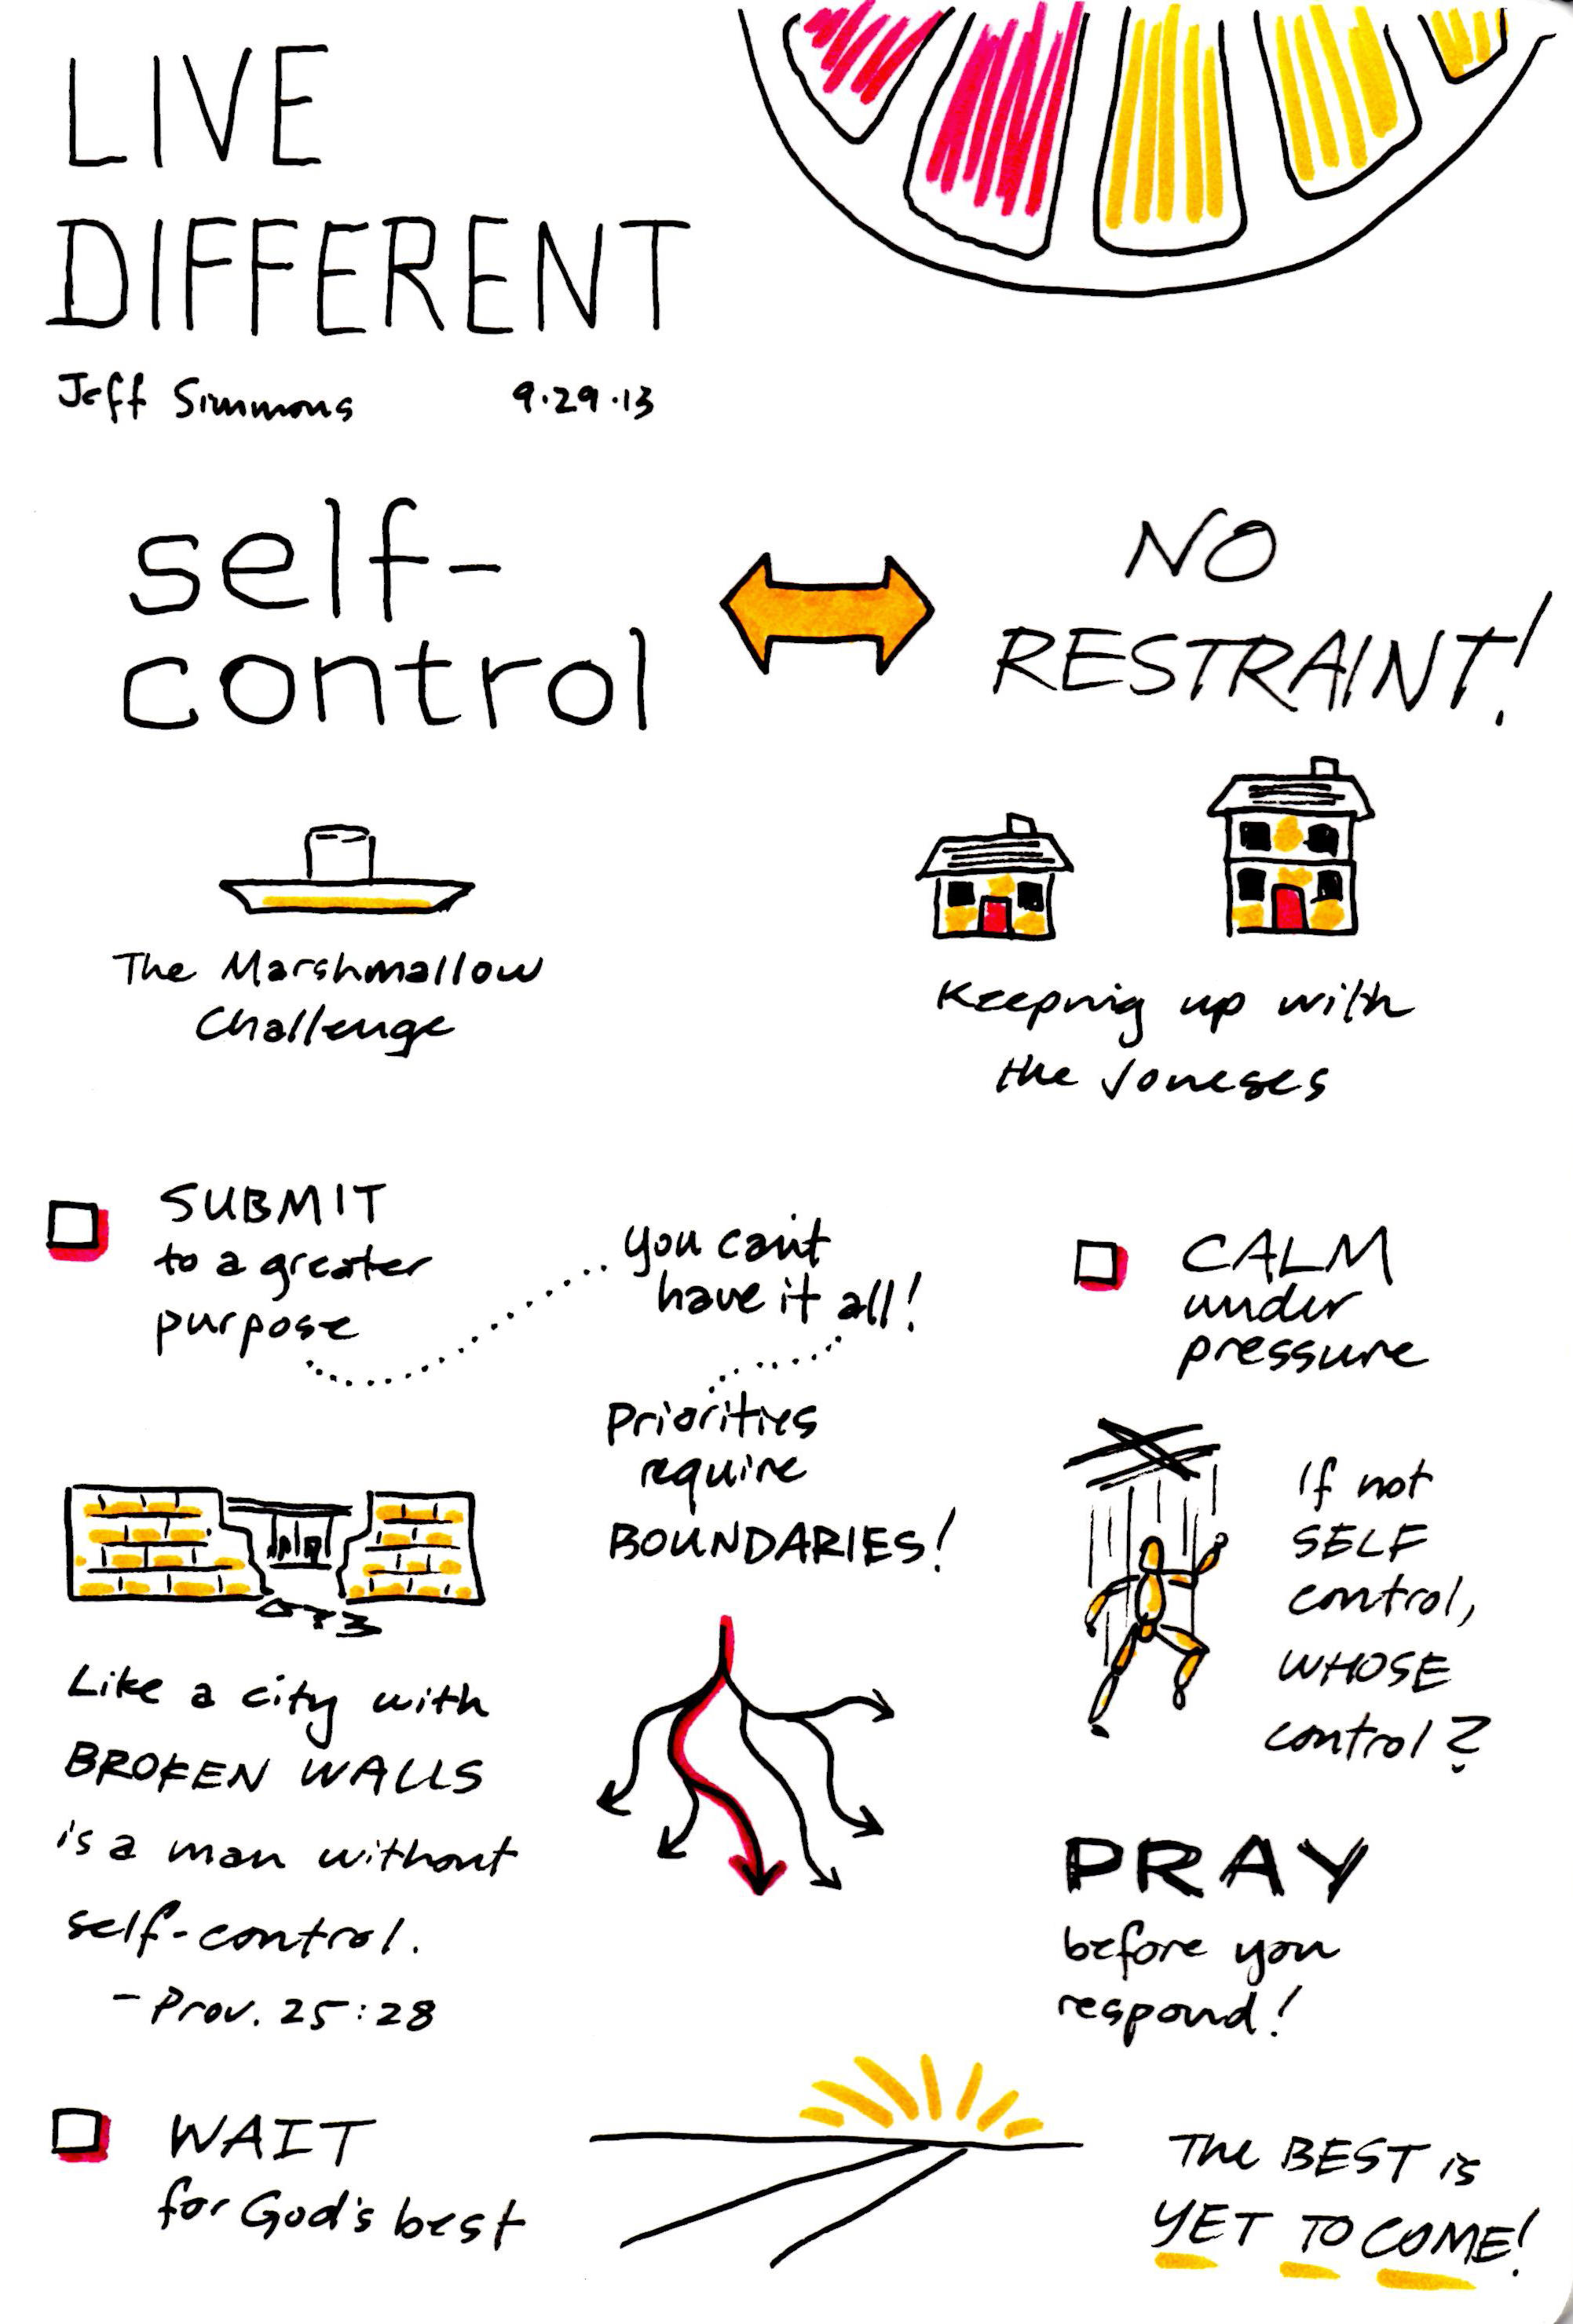 LIVE
DIFFERENT
Jeff Simmons 9.29.13
self-
control
NO
RESTRAINT!
The Marshmallow
Challenge
Keeping up with
the Joneses
SUBMIT
to a greater
purpose
you can't
have it all!
Priorities
require
BOUNDARIES!
CALM
under
pressure
If not
SELF
control,
WHOSE
control?
Like a city with
BROKEN WALLS
is a man without
self-control.
- Prov. 25:28
PRAY
before you
respond!
WAIT
for God's best
The BEST is
YET TO COME!